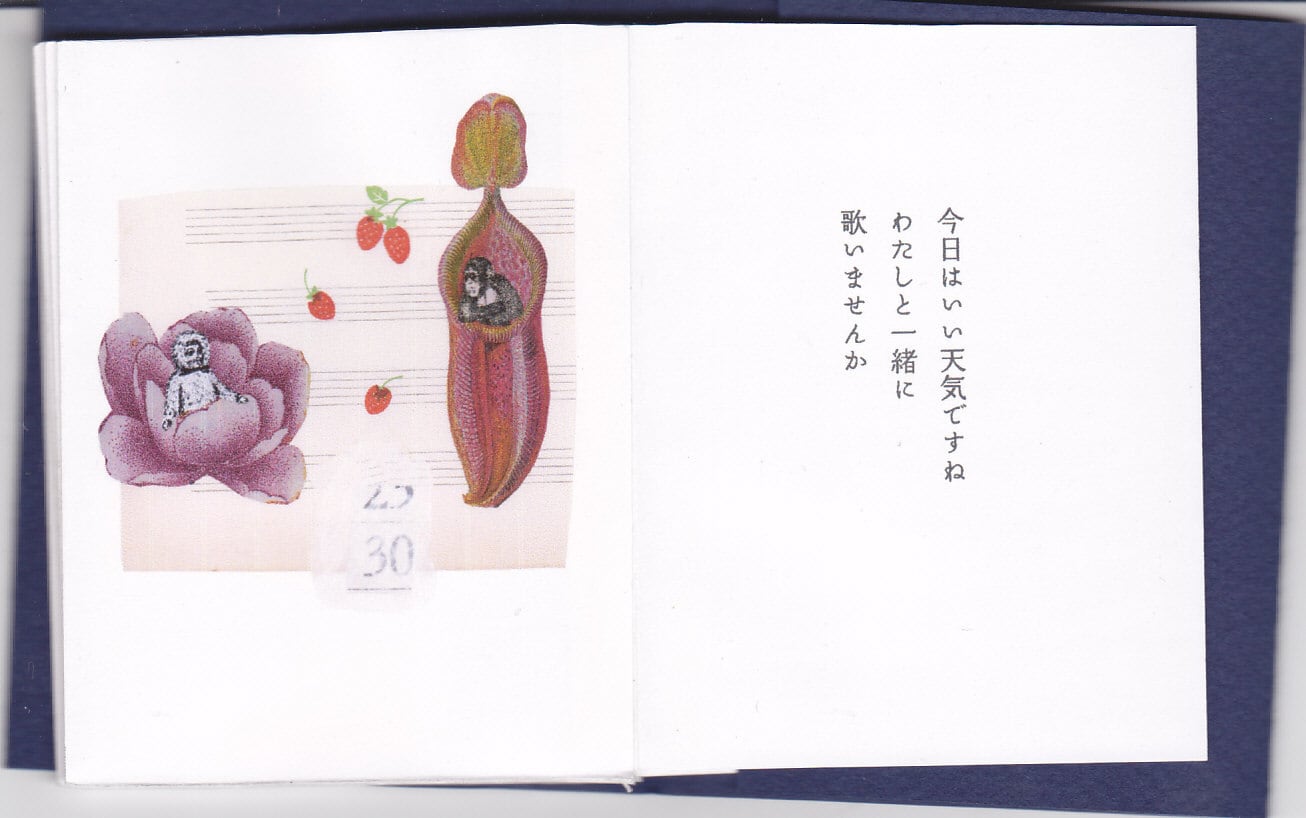 今日はいい天気ですね
わたしと一緒に
歌いませんか
30